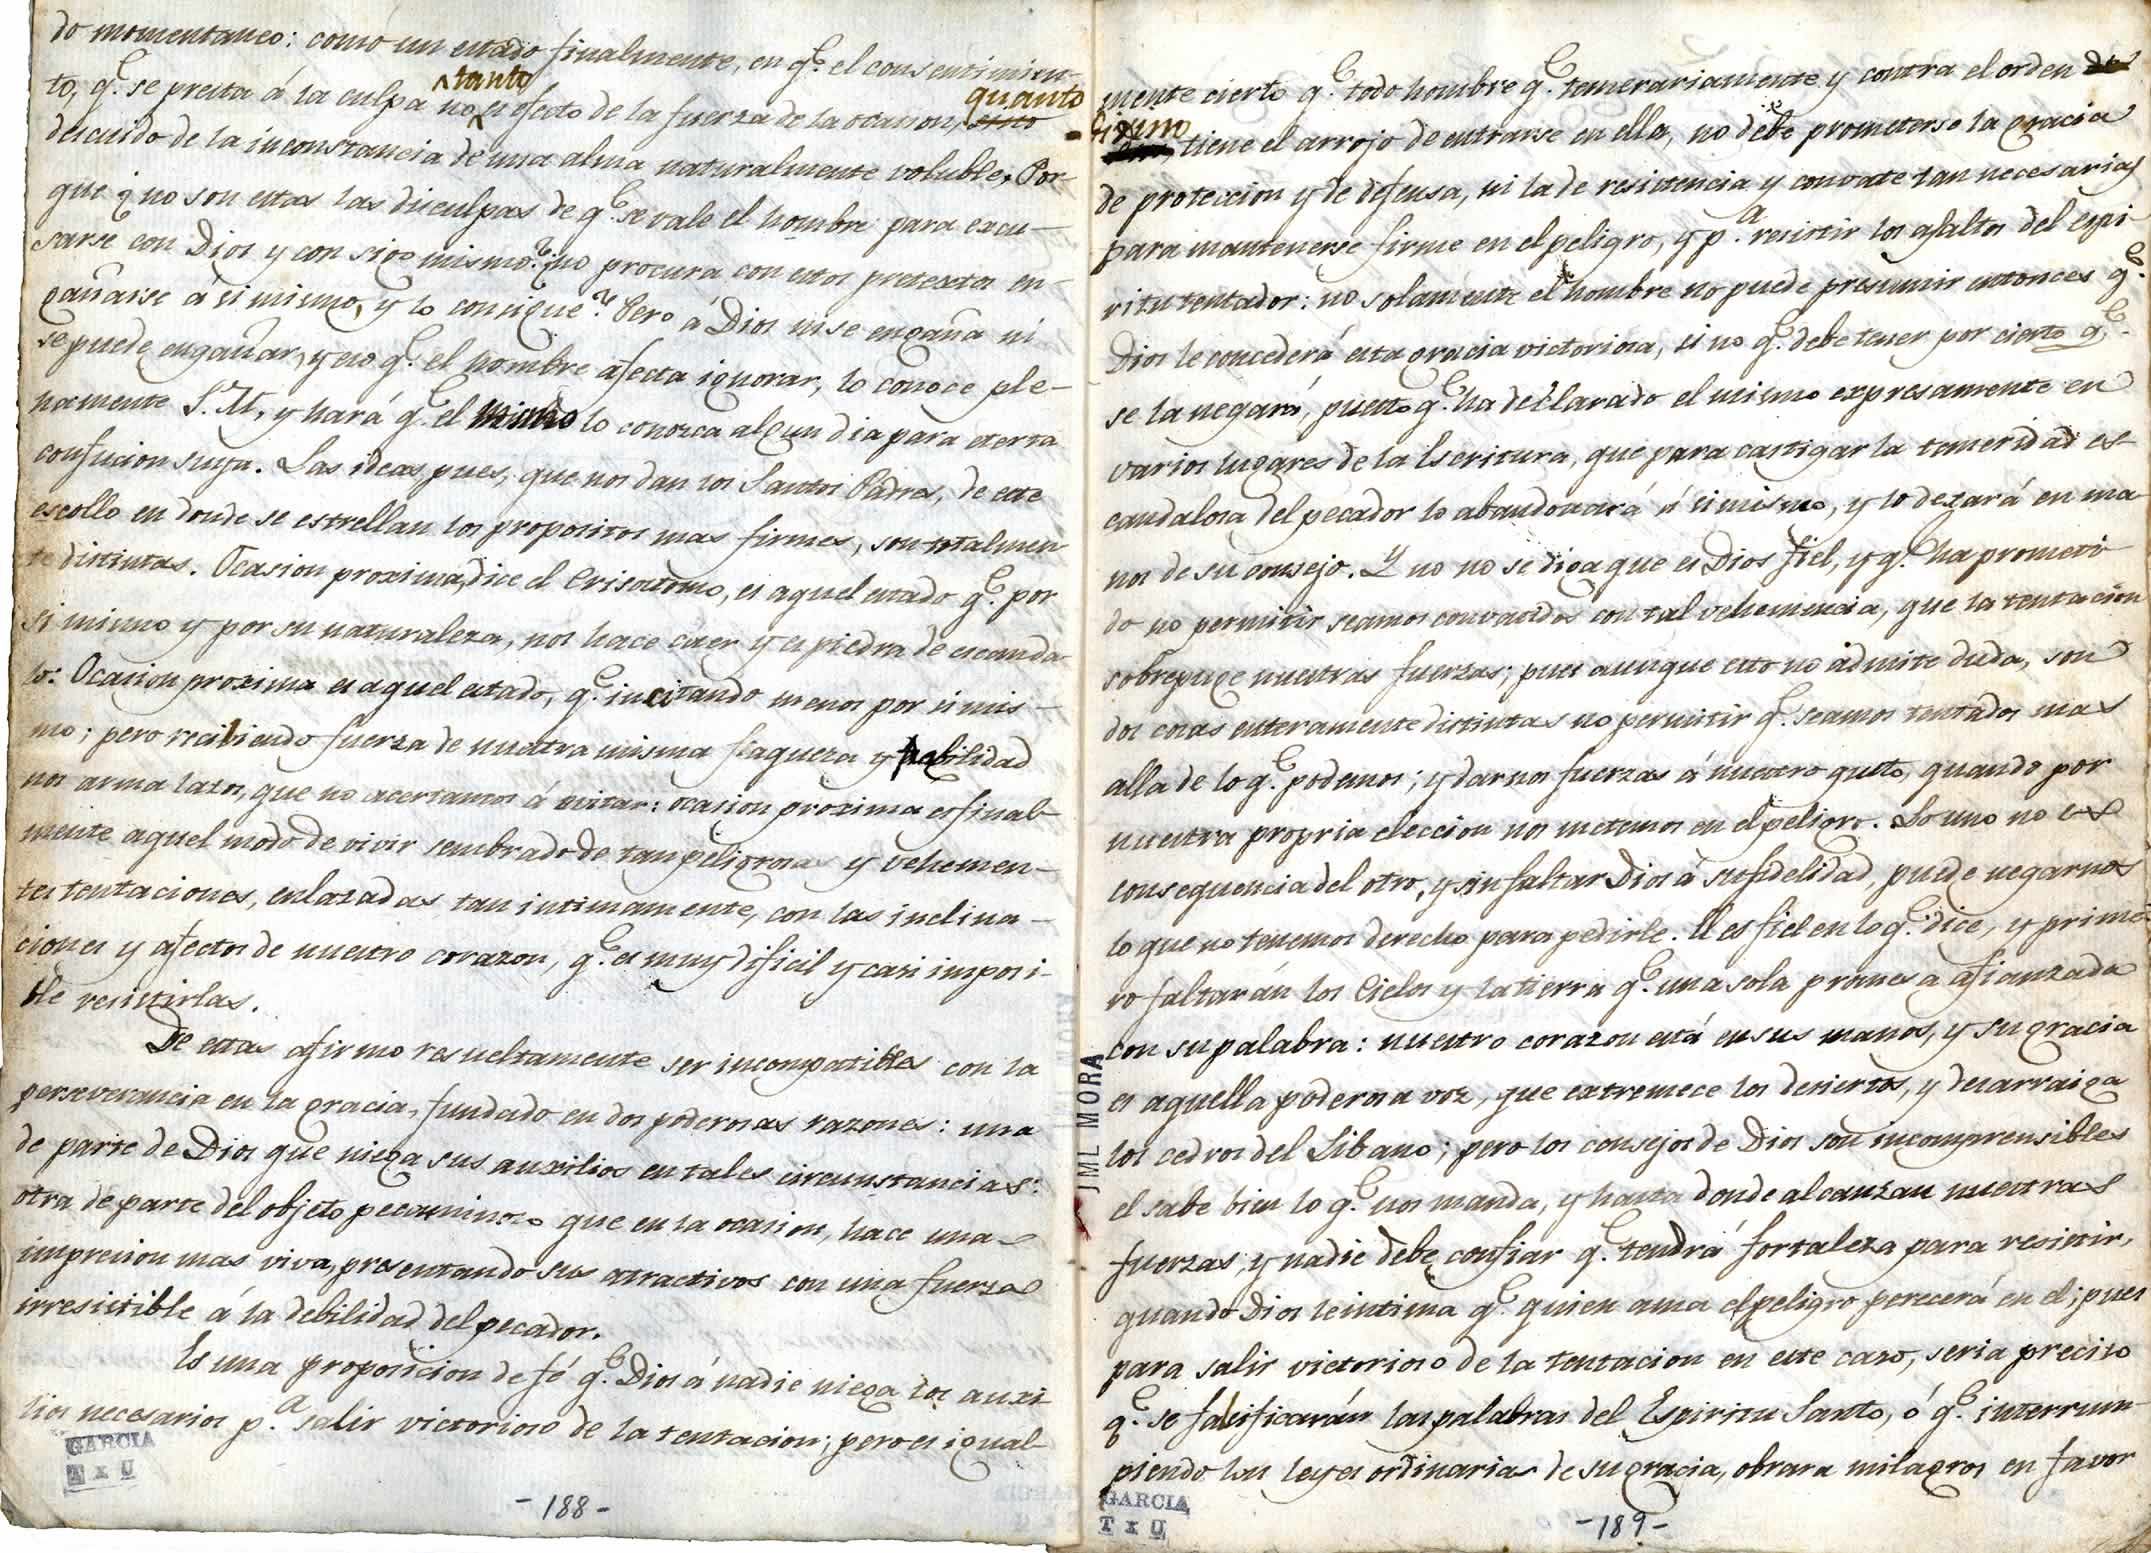 do momentaneo: como un estado finalmente, en q.e el consentimien-
to, q.e se presta á la culpa no tanto es efecto de la fuerza de la ocasion, quanto sino
descuido de la inconstancia de una alma naturalmente voluble. Por-
que ¿no son estas las disculpas de q.e se vale el hombre para excu-
sarse con Dios y con sigo mismo? ¿no procura con estos pretextos en-
gañarse á si mismo, y lo consigue? Pero á Dios ni se engaña ni
se puede engañar, y eso q.e el hombre afecta ignorar, lo conoce ple-
namente S. M, y hará q.e el mismo lo conosca algun dia para eterna
confucion suya. Las ideas, pues, que nos dan los Santos Padres, de este
escollo en donde se estrellan los propositos mas firmes, son totalmen
te distintas. Ocasion proxima, dice el Crisostomo, es aquel estado q.e por
si mismo y por su naturaleza, nos hace caer y es piedra de escanda
lo: Ocasion proxima es aquel estado, q.e incitando menos por si mis-
mo; pero recibiendo fuerza de nuestra misma flaqueza y debilidad
nos arma lazos, que no acertamos á evitar: ocasion proxima es final-
mente aquel modo de vivir sembrado de tan peligrosas y vehemen-
tes tentaciones, enlazadas tan intimamente, con las inclina-
ciones y afectos de nuestro corazon, q.e es muy dificil y casi imposi-
ble resistirlas.
De estas afirmo resueltamente ser incompatibles con la
perseverancia en la gracia, fundado en dos poderosas razones: una
de parte de Dios que niega sus auxilios en tales circunstancias:
otra de parte del objeto pecaminoso que en la ocasion, hace una
impresion mas viva, presentando sus atractivos con una fuerza
irresistible á la debilidad del pecador.
Es una proposicion de fé q.e Dios á nadie niega los auxi
lios necesarios p.a salir victorioso de la tentacion; pero es igual-
GARCIA
T x U
-188-
mente cierto q.e todo hombre q.e temerariamente y contra el orden de
Divino, tiene el arrojo de entrarse en ella, no debe prometerse la gracia
de proteccion y de defensa, ni la de resistencia y convate tan necesarias
para mantenerse firme en el peligro, y p.a resistir los asaltos del espi-
ritu tentador: no solamente el hombre no puede presumir entonces q.e
Dios le concederá esta gracia victoriosa, si no q.e debe tener por cierto q.e
se la negará, puesto q.e ha declarado el mismo expresamente en
varios lugares de la Escritura, que para castigar la temeridad es-
candalosa del pecador lo abandonará á si mismo, y lo dexará en ma
nos de su consejo. Y no no se diga que es Dios fiel, y q.e ha prometi-
do no permitir seamos convatidos con tal vehemencia, que la tentacion
sobrepuge nuestras fuerzas; pues aunque esto no admite duda, son
dos cosas enteramente distintas no permitir q.e seamos tentados mas
alla de lo q.e podemos; y darnos fuerzas á nuestro gusto, quando por
nuestra propria eleccion nos metemos en el peligro. Lo uno no es
consequencia del otro, y sin faltar Dios á su fidelidad, puede negarnos
lo que no tenemos derecho para pedirle. El es fiel en lo q.e dice, y prime-
ro faltarán los Cielos y la tierra q.e una sola promesa afianzada
con su palabra: nuestro corazon está en sus manos, y su gracia
es aquella poderosa voz, que extremece los desiertos, y desarraiga
los cedros del Libano; pero los consejos de Dios son incomprensibles
el sabe bien lo q.e nos manda, y hasta donde alcanzan nuestras
fuerzas, y nadie debe confiar q.e tendrá fortaleza para resistir,
quando Dios le intima q.e quien ama el peligro perecerá en el; pues
para salir victorioso de la tentacion en este caso, seria preciso
q.e se falsificarán las palabras del Espiritu Santo, ó q.e interrum-
piendo las leyes ordinarias de su gracia, obrara milagros en favor
JML MORA
GARCIA
T x U
-189-